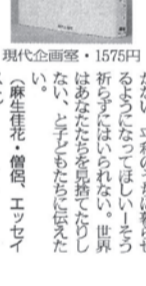 現代企画室・1575円
るようになってほしい―そう
祈らずにはいられない。世界
はあなたたちを見捨てたりし
ない、と子どもたちに伝えた
い。
（麻生佳花・僧侶、エッセイ